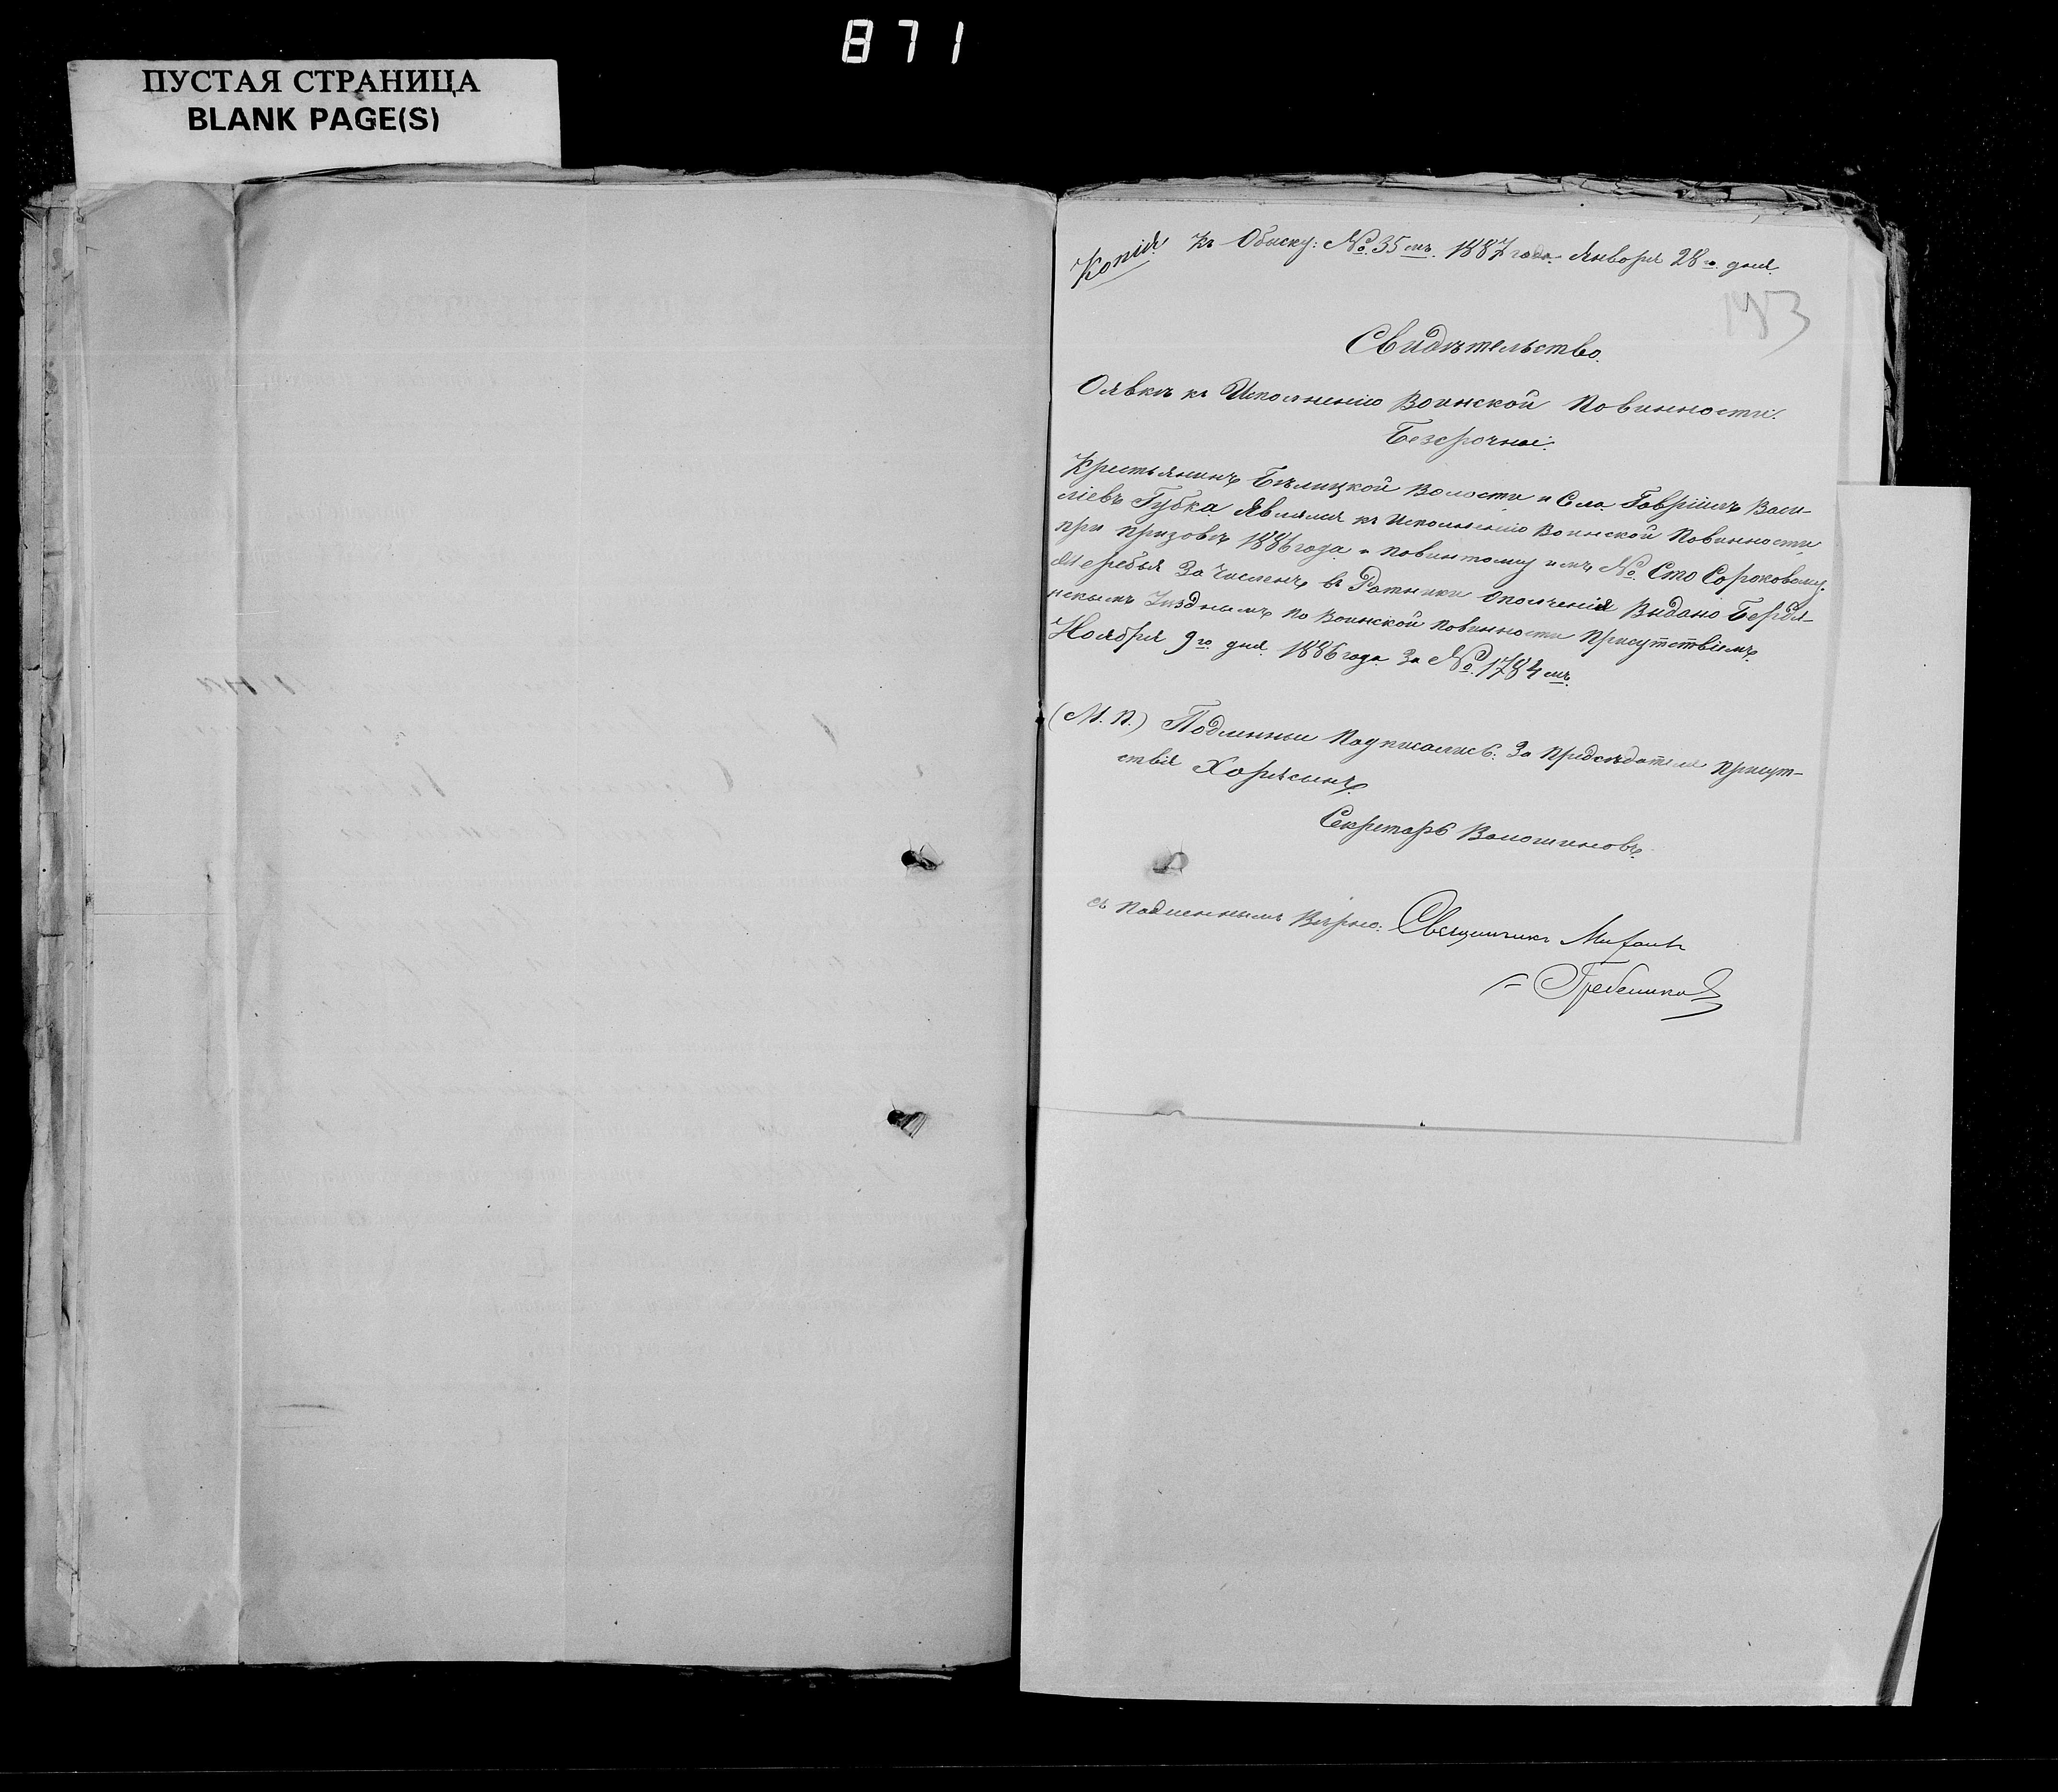 871
ПУСТАЯ СТРАНИЦА
BLANK PAGE(S)
Копія. Къ Обыску: №. 35 мъ. 1887 года. Января 28 го. дня.
193
Свидѣтельство.
О явкѣ къ Исполненію Воинской Повинности.
Безсрочное.
Крестьянинъ Бѣлицкой Волости и Села Гавріилъ Васи-
ліевъ Губка. Являлся къ Исполненію Воинской Повинности,
при призовѣ 1886 года и повинтому имъ №. Сто Сороковому.
Жеребья Зачисленъ въ Ратники Ополченія Выдано Бердя-
нскымъ Уѣзднымъ по Воинской Повинности Присутствіемъ.
Ноября 9 го. дня. 1886 года За №. 1784 мъ.
(М. П.) Подленныи Подписалисъ: За Предсѣдателя Присут-
ствія
Секретарь Волошиновъ.
съ Подленнымъ Вѣрно: Священникъ Михаилъ
Гребенико